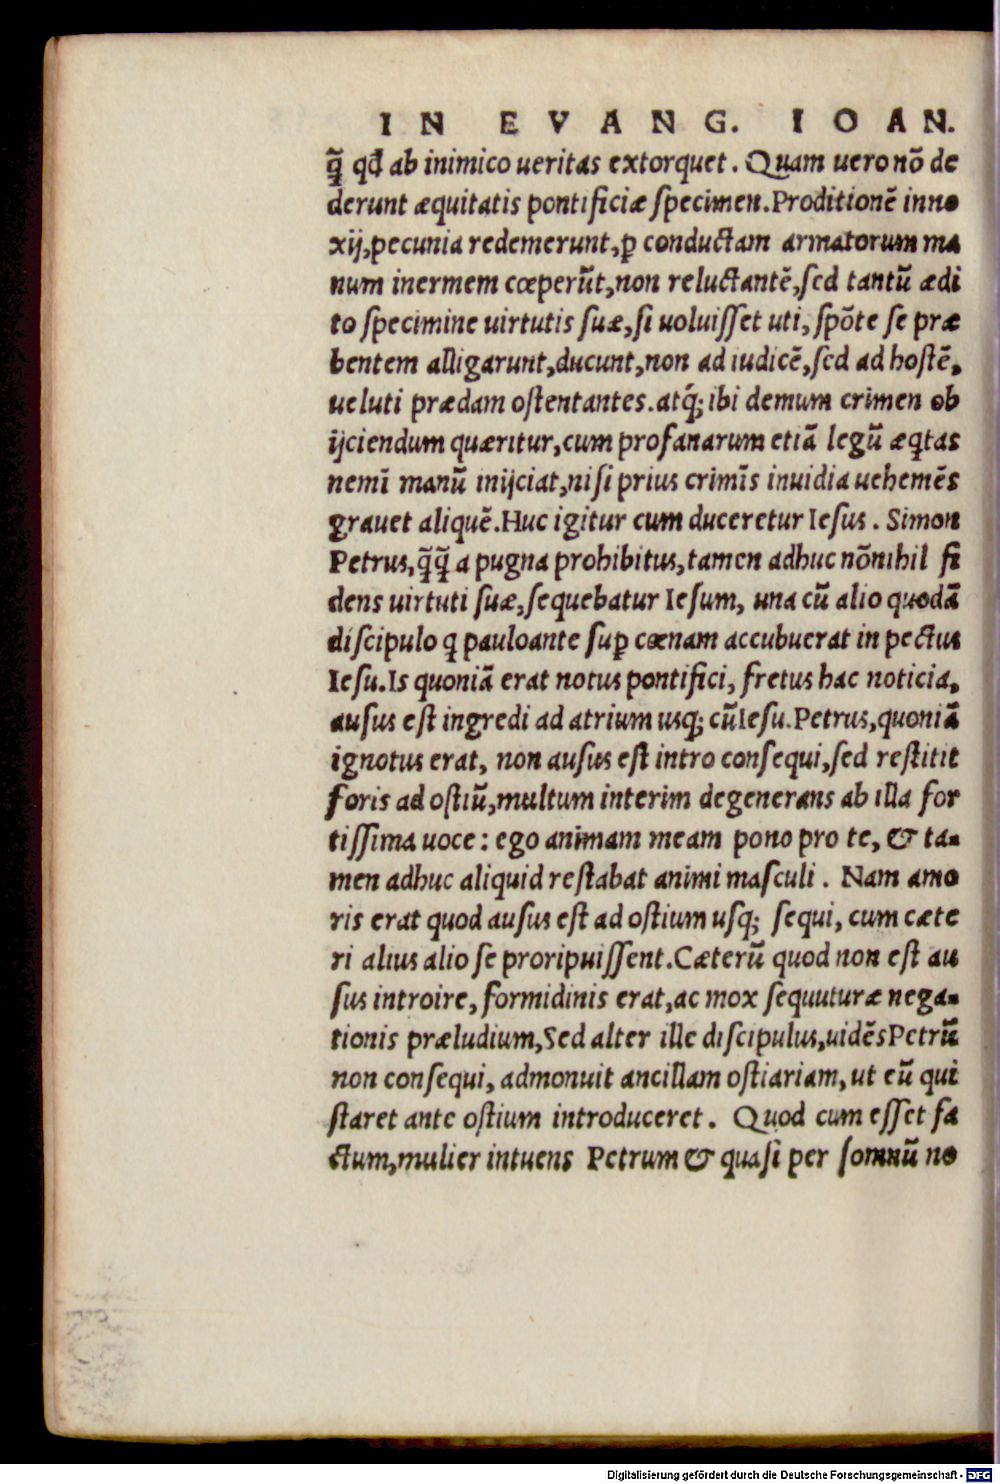 IN EVANG. IOAN.
ꝗ̃ qđ ab inimico ueritas extorquet. Quam uero nõ de
derunt æquitatis pontificiæ ſpecimen. Proditionẽ inno
xij, pecunia redemerunt, ꝑ conductam armatorum ma
num inermem cœperũt, non reluctantẽ, ſed tantũ ædi
to ſpecimine uirtutis ſuæ, ſi uoluiſſet uti, ſpõte ſe præ
bentem alligarunt, ducunt, non ad iudicẽ, ſed ad hoſtẽ,
ueluti prædam oſtentantes. atq́; ibi demum crimen ob
ijciendum quæritur, cum profanarum etiã legũ æꝗtas
nemĩ manũ inijciat, niſi prius crimĩs inuidia uehemẽs
grauet aliquẽ. Huc igitur cum duceretur Ieſus. Simon
Petrus, ꝗ̃ꝗ̃ a pugna prohibitus, tamen adhuc nõnihil fi
dens uirtuti ſuæ, ſequebatur Ieſum, una cũ alio quodã
diſcipulo ꝗ pauloante ſuꝑ cœnam accubuerat in pectus
Ieſu. Is quoniã erat notus pontifici, fretus hac noticia,
auſus eſt ingredi ad atrium uſq; cũ Ieſu. Petrus, quoniã
ignotus erat, non auſus eſt intro conſequi, ſed reſtitit
foris ad oſtiũ, multum interim degenerans ab illa for
tiſſima uoce: ego animam meam pono pro te, & ta-
men adhuc aliquid reſtabat animi maſculi. Nam amo
ris erat quod auſus eſt ad oſtium uſq; ſequi, cum cæte
ri alius alio ſe proripuiſſent. Cæterũ quod non eſt au
ſus introire, formidinis erat, ac mox ſequuturæ nega-
tionis præludium, Sed alter ille diſcipulus, uidẽs Petrũ
non conſequi, admonuit ancillam oſtiariam, ut eũ qui
ſtaret ante oſtium introduceret. Quod cum eſſet fa
ctum, mulier intuens Petrum & quaſi per ſomnũ no
Digitalisierung gefördert durch die Deutsche Forschungsgemeinschaft - DFG